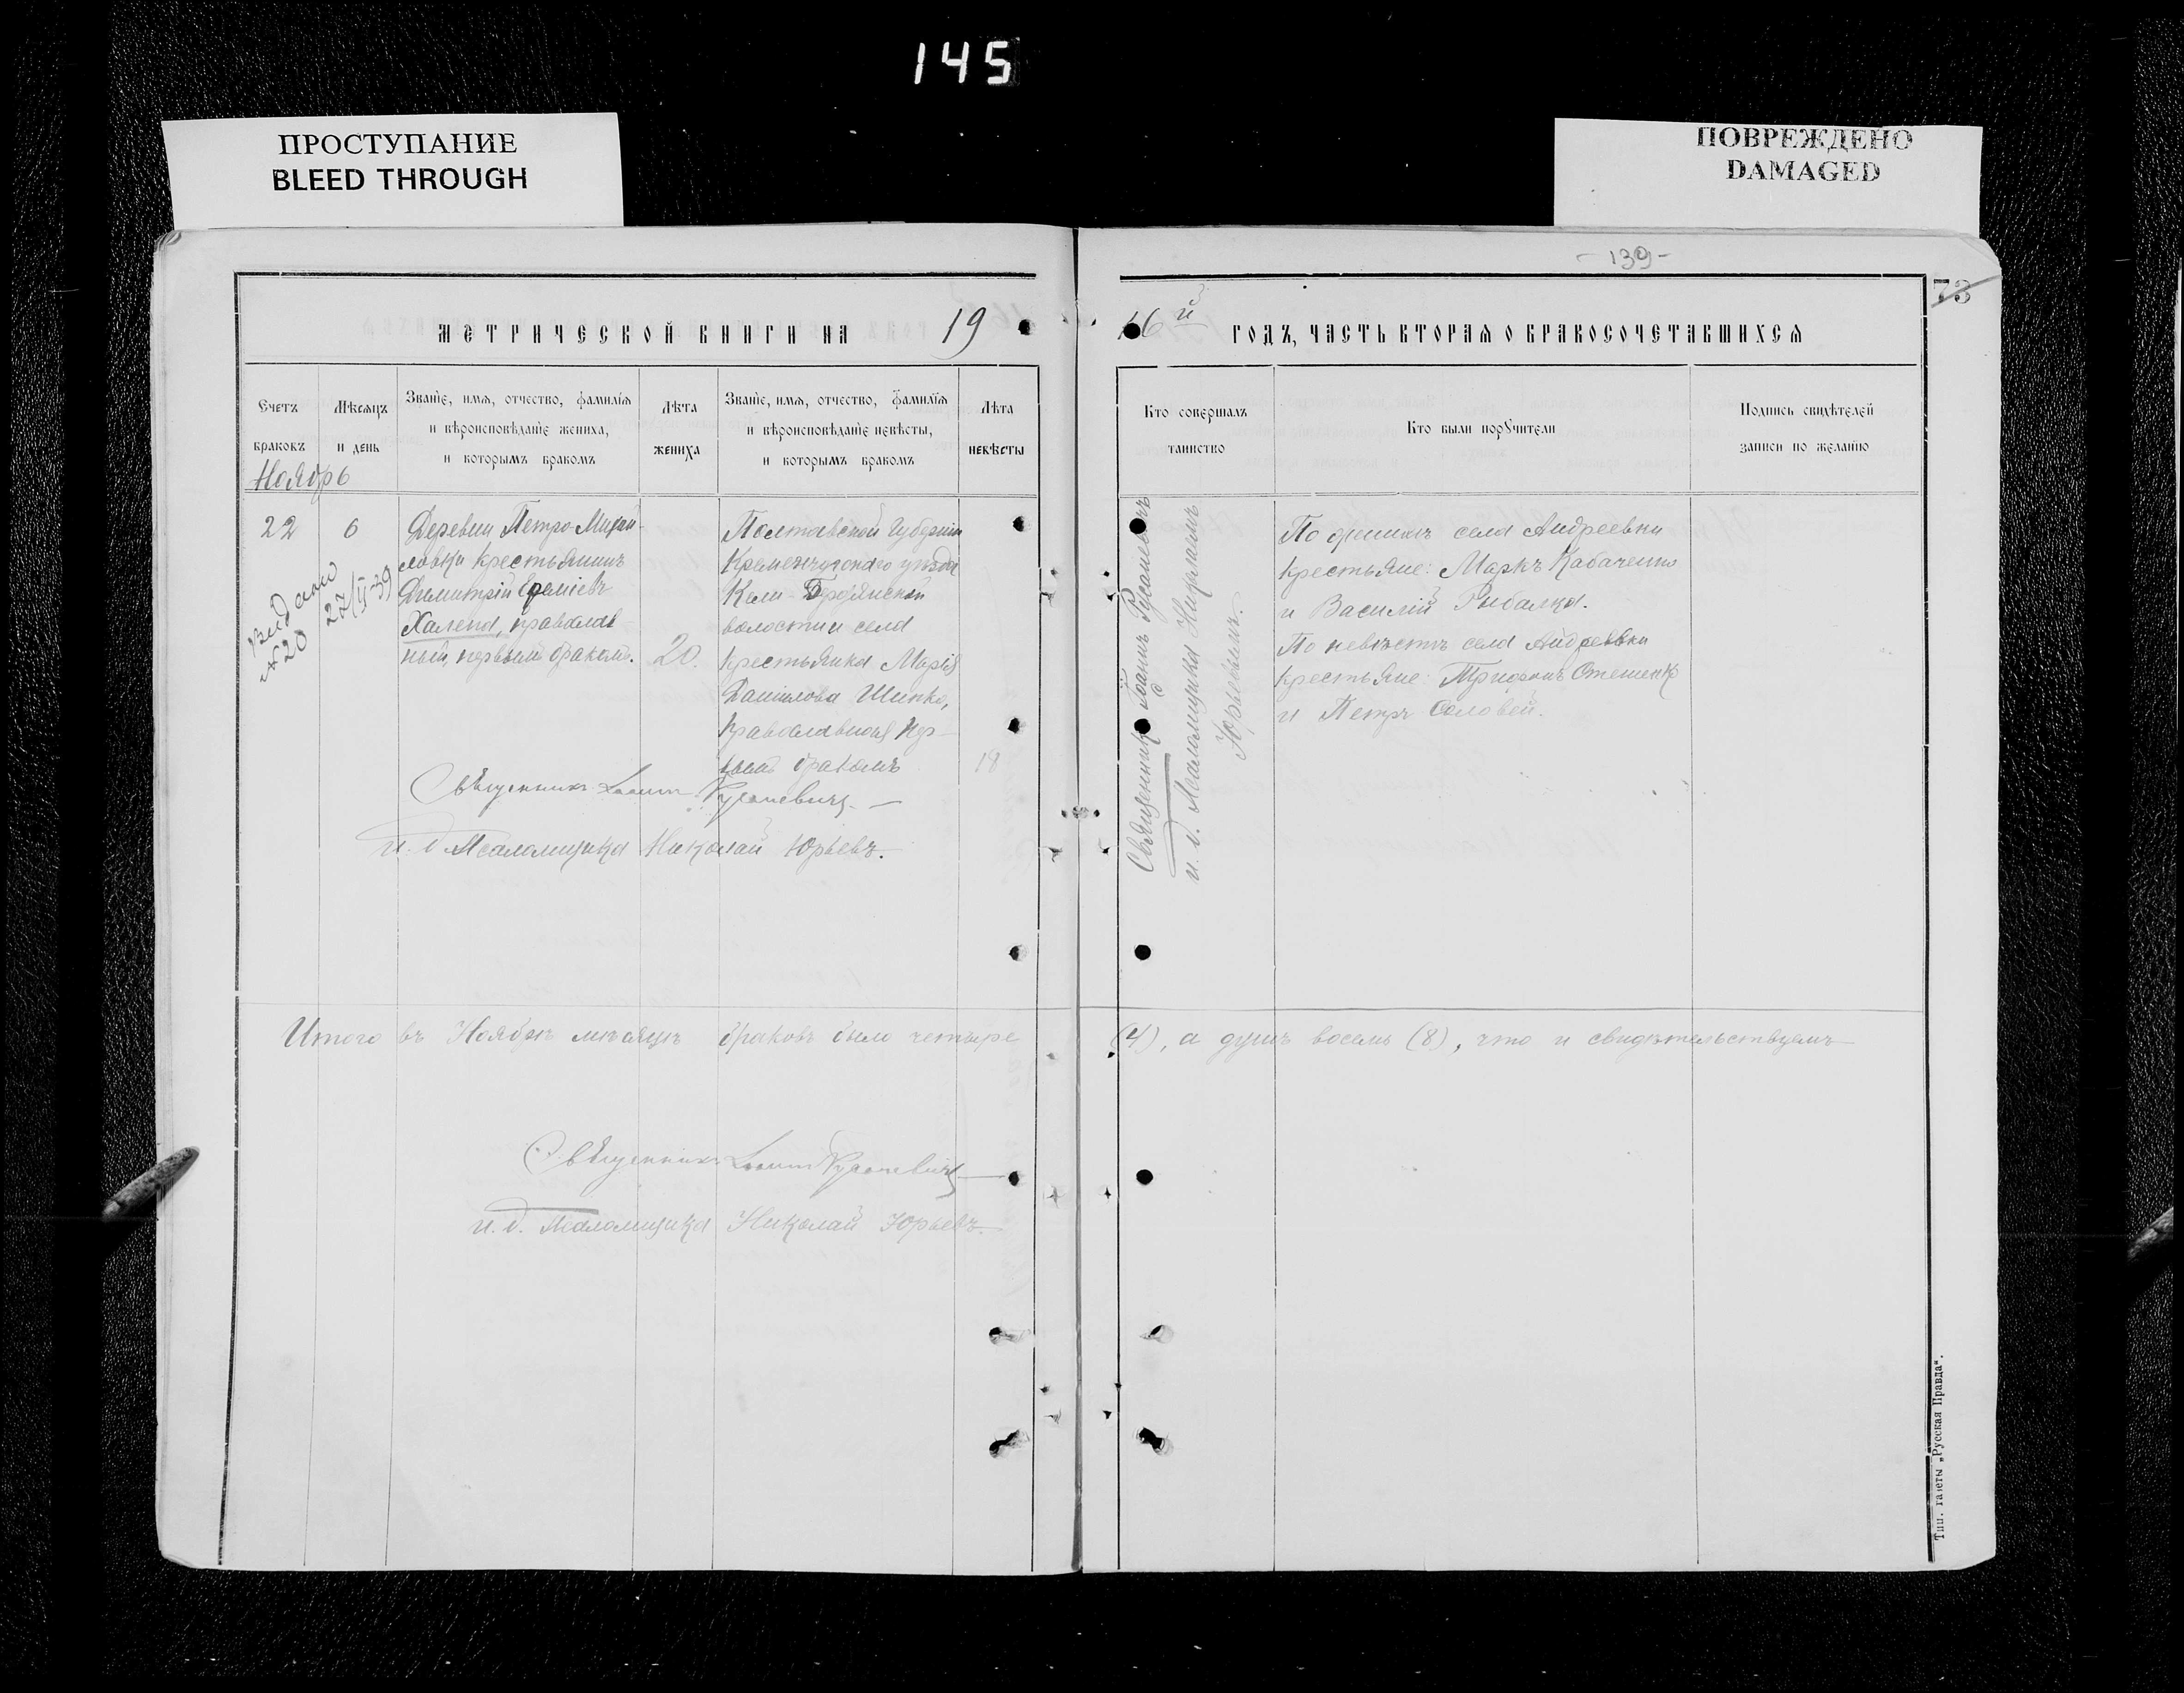 145
ПРОСТУПАНИЕ
BLEED THROUGH
ПОВРЕЖДЕНО
DAMAGED
МЕТРИЧЕСКОЙ КНИГИ НА 19
Счетъ браковъ
Мѣсяцъ и день
Званїе, имя, отчество, фамилїя
и вѣроисповѣданїе жениха,
и которымъ бракомъ
Лѣта жениха
Званїе, имя, отчество, фамилїя
и вѣроисповѣданїе невѣсты,
и которымъ бракомъ
Лѣта невѣсты
Ноябрь
22
6
Выдано
27/II-39
№20
Деревни Петро-Михай-
ловки крестьянинъ
Димитрій
Халепа, православ-
ный, первымъ бракомъ.
20.
Полтавской губерніи
Кременчугскаго уѣзда
волости и села
крестьянка Марія
Данилова Шипко,
православная пер-
вымъ бракомъ
18
Священникъ Іоаннъ Русаневичъ
и. д. Псаломщика Николай Юрьевъ.
Итого въ Ноябрѣ мѣсяцѣ браковъ было четыре
Священникъ Іоаннъ Русаневичъ
и. д. Псаломщика Николай Юрьевъ.
-139-
73
16й ГОДЪ, ЧАСТЬ ВТОРАЯ О БРАКОСОЧЕТАВШИХСЯ
Кто совершалъ
таинство
Кто были поручители
Подпись свидѣтелей
записи по желанїю
Священникъ Іоаннъ Русаневичъ
и. д. Псаломщика Николаемъ
Юрьевымъ.
По женихѣ села Андреевки
крестьяне: Маркъ Кабаченко
и Василій Рыбалка.
По невѣстѣ села Андреевки
крестьяне: Трифонъ Стешенко
и Петръ Соловей.
(4), а душъ восемь (8), что и свидѣтельствуемъ
Тип. газеты „Русская Правда“.